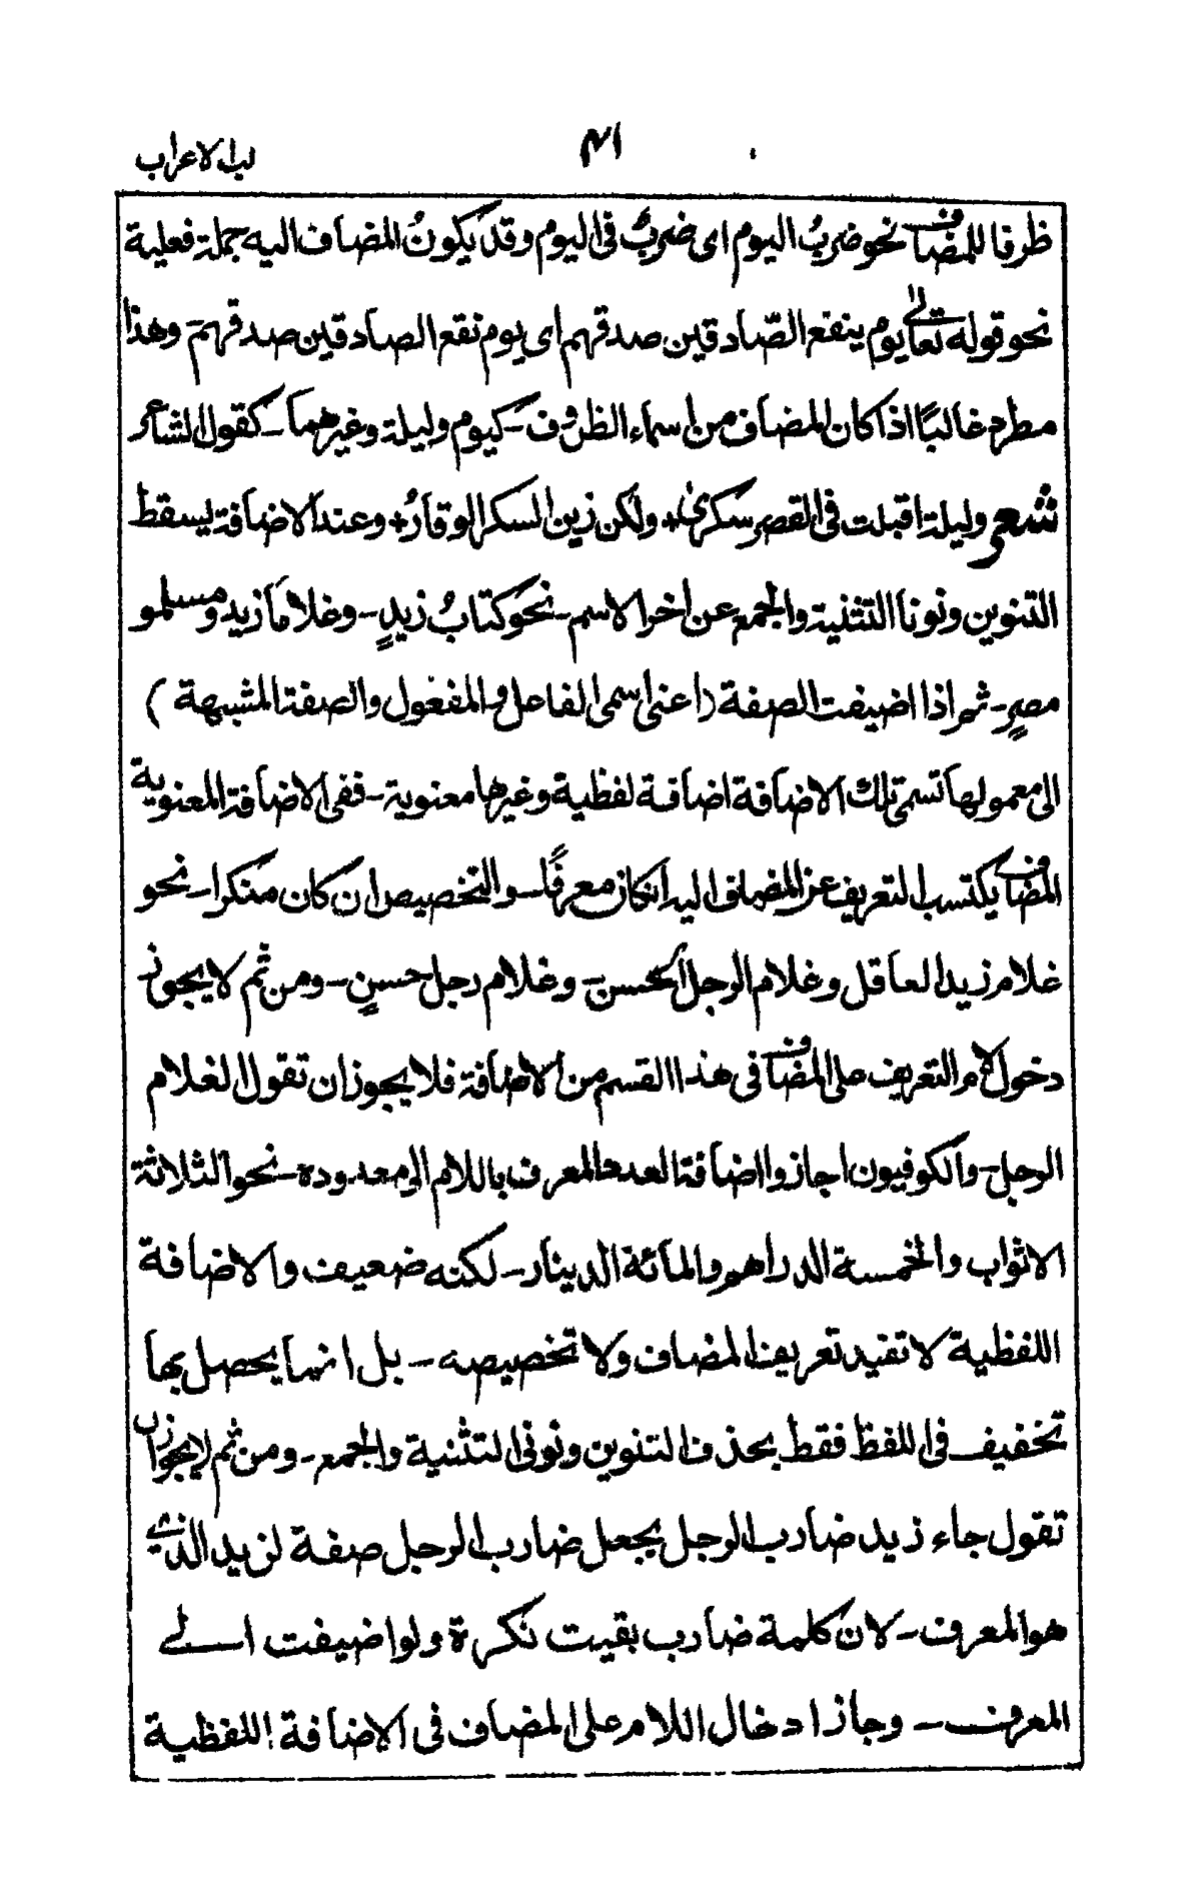 لباب الاعراب
٤١
ظرفا للمضاف نحو ضربُ اليوم اى ضربٌ فى اليوم وقد يكونُ المضاف اليه جملة فعلية
نحو قوله تعالى يوم ينفع الصّادقين صدقهم اى يوم نفع الصادقين صدقهم - وهذا
مطرد غالبًا اذا كان المضاف من اسماء الظروف - كيوم وليلة وغيرهما - كقول الشاعر
شعر وليلة اقبلت فى القصر سكرىٰ + ولكن زين السكر الوقارُ + وعند الاضافة يسقط
التنوين ونونا التثنية والجمع عن اخر الاسم - نحو كتابُ زيدٍ - وغلاما زيد ومسلمو
مصرٍ - ثم اذا اضيفت الصفة (اعنى اسمى الفاعل والمفعول والصفة المشبهة)
الى معمولها تسمى تلك الاضافة اضافة لفظية وغيرها معنوية - ففى الاضافة المعنوية
المضاف يكتسب التعريف عن المضاف اليه ان كان معرفًا - والتخصيص ان كان منكرا - نحو
غلام زيد العاقل وغلام الرجل الحسن - وغلام رجل حسنٍ - ومن ثم لا يجوز
دخول لام التعريف على المضاف فى هذا القسم من الاضافة فلا يجوز ان تقول الغلام
الرجل - والكوفيون اجازوا اضافة العدد المعرف باللام الى معدوده - نحو الثلاثة
الاثواب والخمسة الدراهم والمائة الدينار - لكنه ضعيف والاضافة
اللفظية لا تفيد تعريف المضاف ولا تخصيصه - بل انما يحصل بها
تخفيف فى اللفظ فقط بحذف التنوين ونونى التثنية والجمع - ومن ثم لا يجوز ان
تقول جاء زيد ضارب الرجل بجعل ضارب الرجل صفة لزيد الذى
هو المعرف - لان كلمة ضارب بقيت نكرة ولو اضيفت الى
المعرف - وجاز ادخال اللام على المضاف فى الاضافة اللفظية